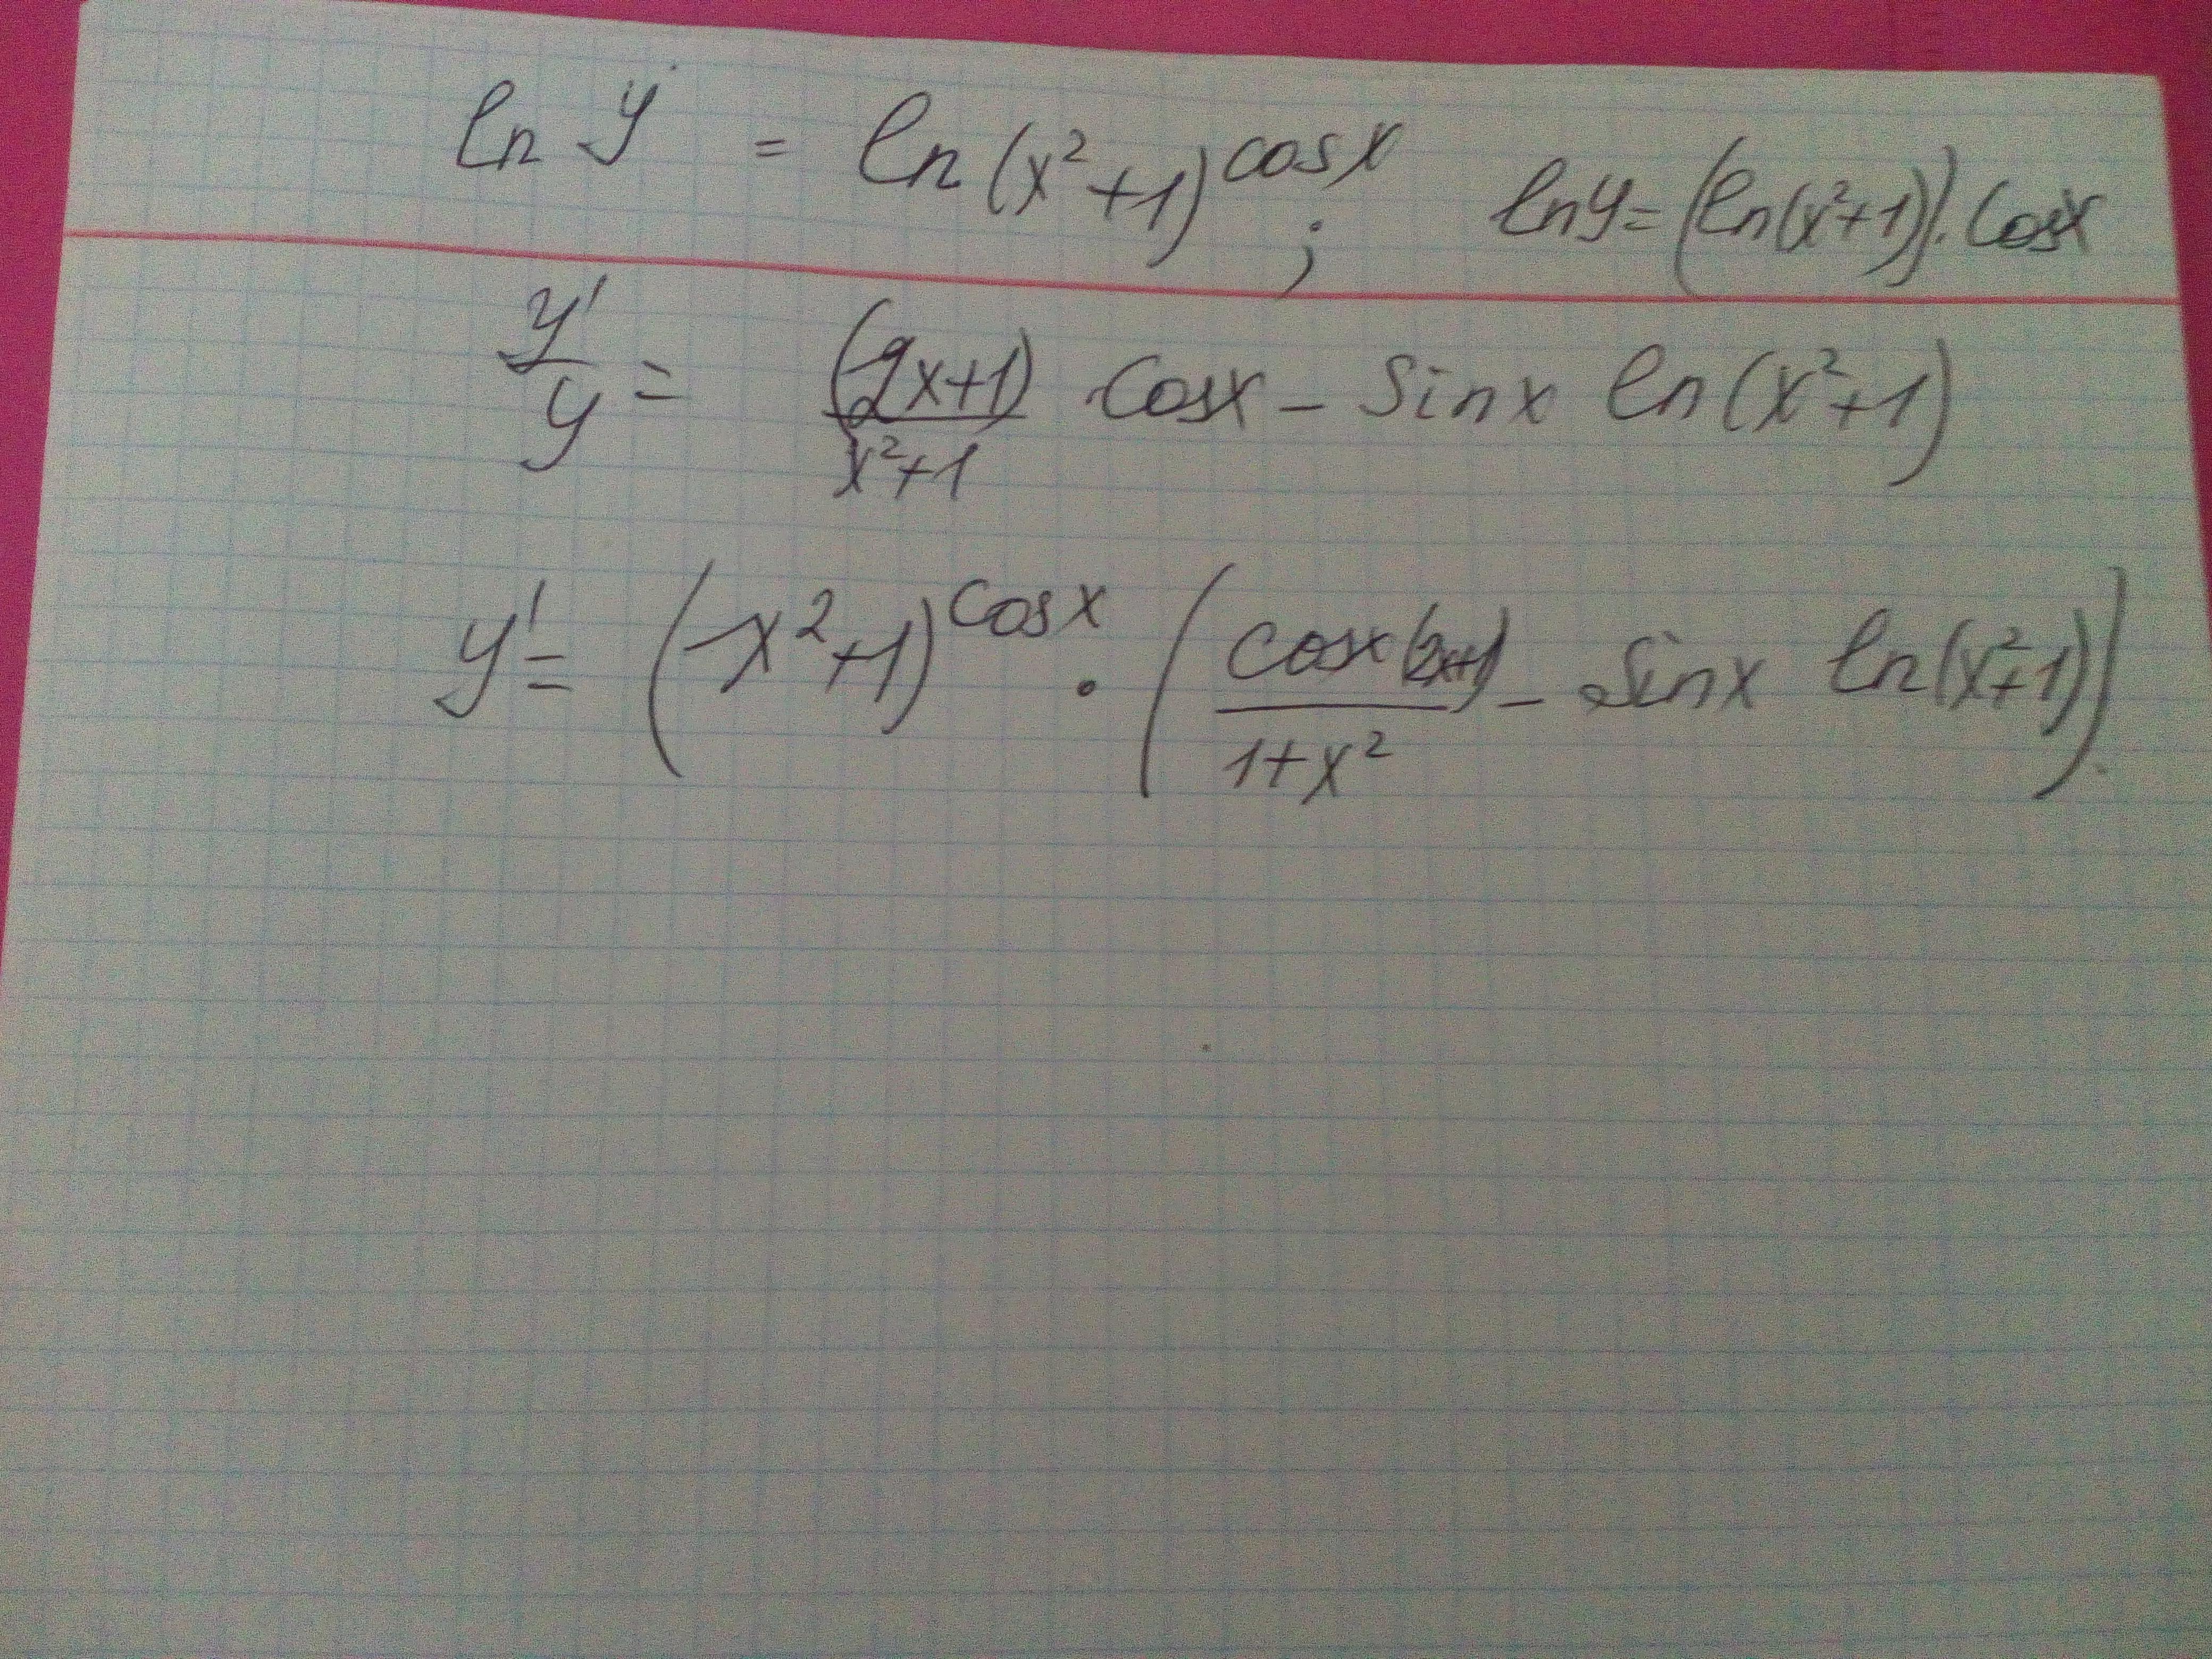 ln y = ln(x²+1)^cosx ; lny = (ln(x²+1)).cosx
y'/y = (2x+1)/(x²+1) · cosx - sinx ln(x²+1)
y' = (x²+1)^cosx · (cosx(2x+1)/(1+x²) - sinx ln(x²+1)).